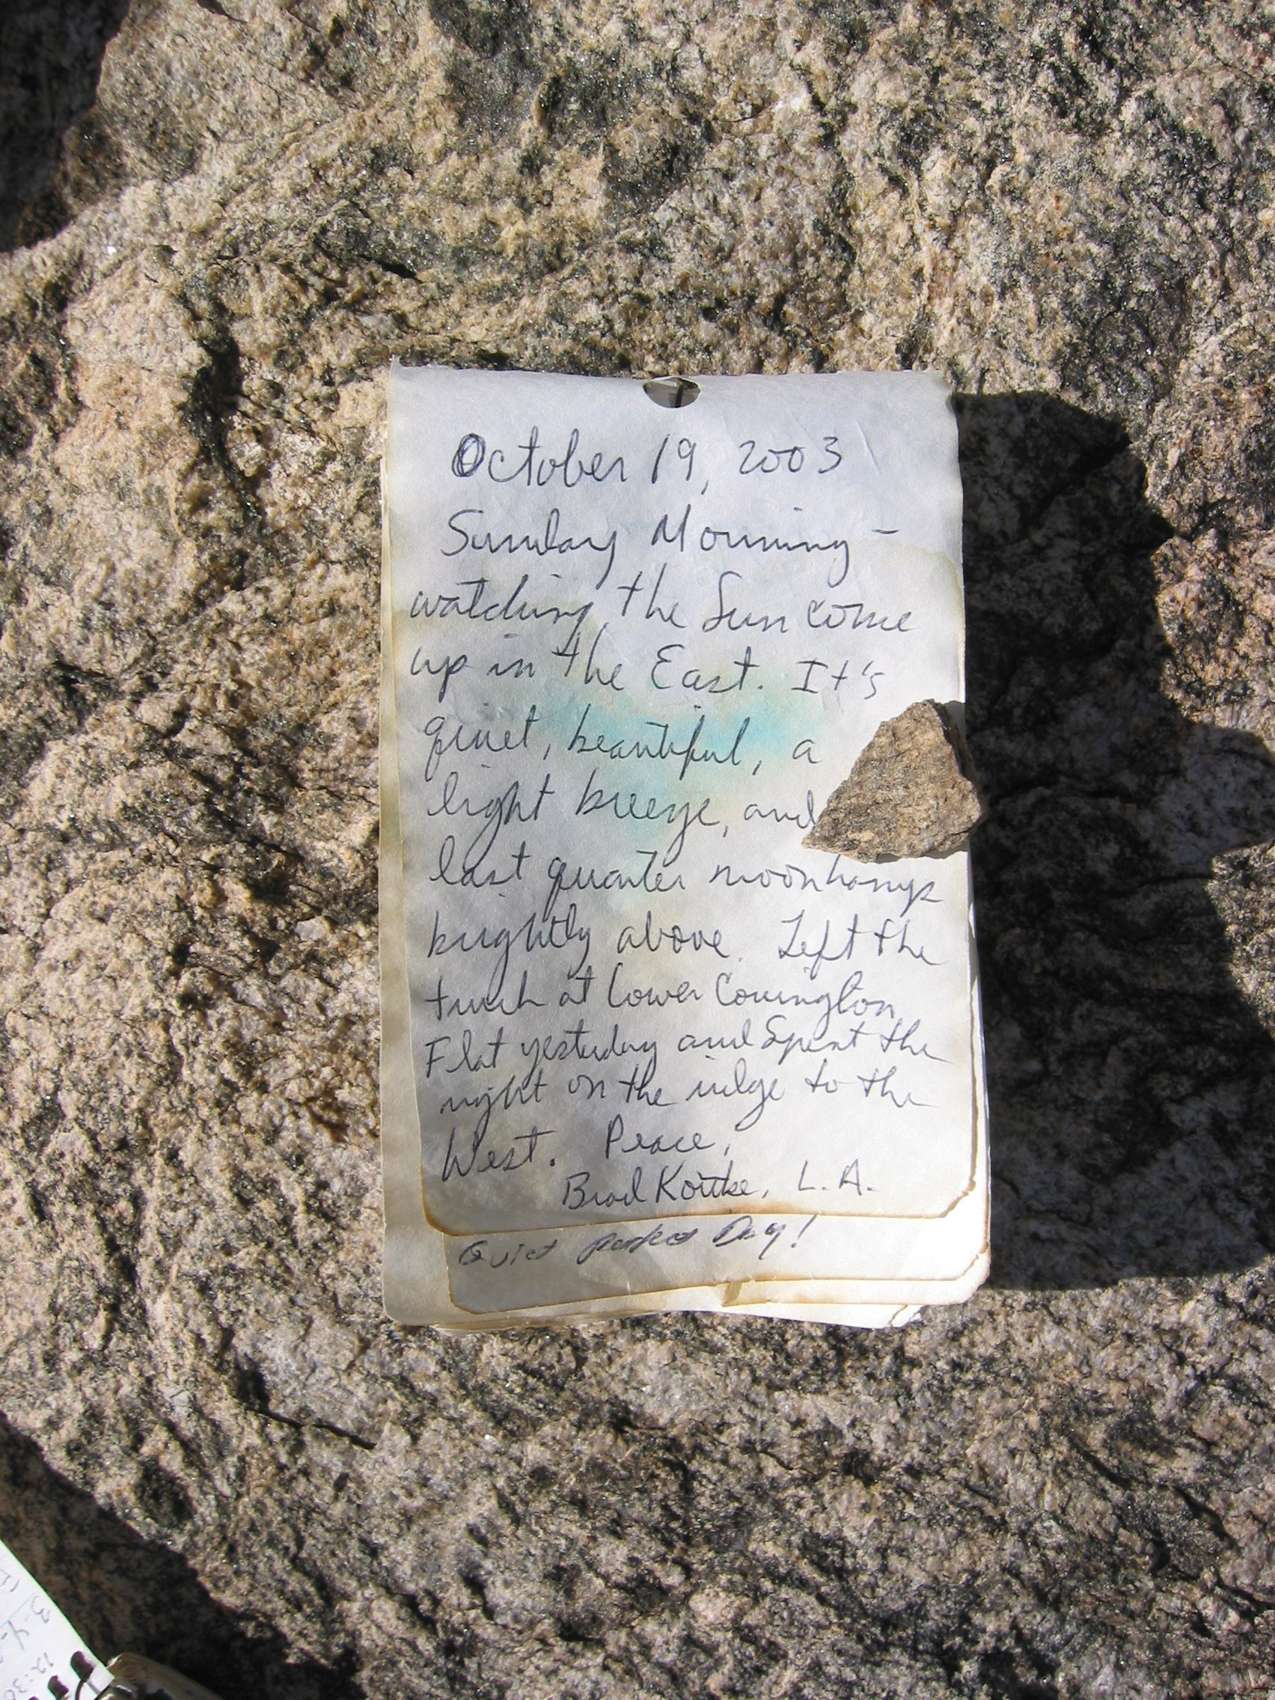 October 19, 2003
Sunday Morning -
watching the Sun come
up in the East. It's
quiet, beautiful, a
light breeze, and
last quarter moon hangs
brightly above. Left the
truck at Lower Covington
Flat yesterday and Spent the
night on the ridge to the
West. Peace,
Brad L.A.
Quiet perfect Day!